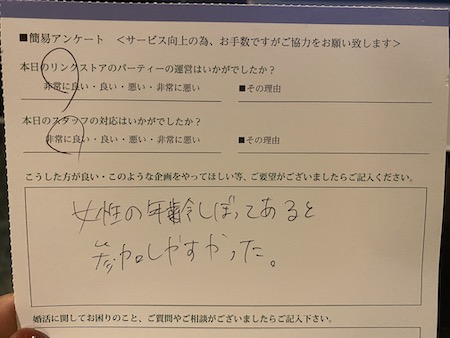 ■簡易アンケート ＜サービス向上の為、お手数ですがご協力をお願い致します＞
本日のリンクストアのパーティーの運営はいかがでしたか？
非常に良い・良い・悪い・非常に悪い ■その理由
本日のスタッフの対応はいかがでしたか？
非常に良い・良い・悪い・非常に悪い ■その理由
こうした方が良い・このような企画をやってほしい等、ご要望がございましたらご記入ください。
女性の年齢しぼってあると
参加しやすかった。
婚活に関してお困りのこと、ご質問やご相談がございましたらご記入下さい。